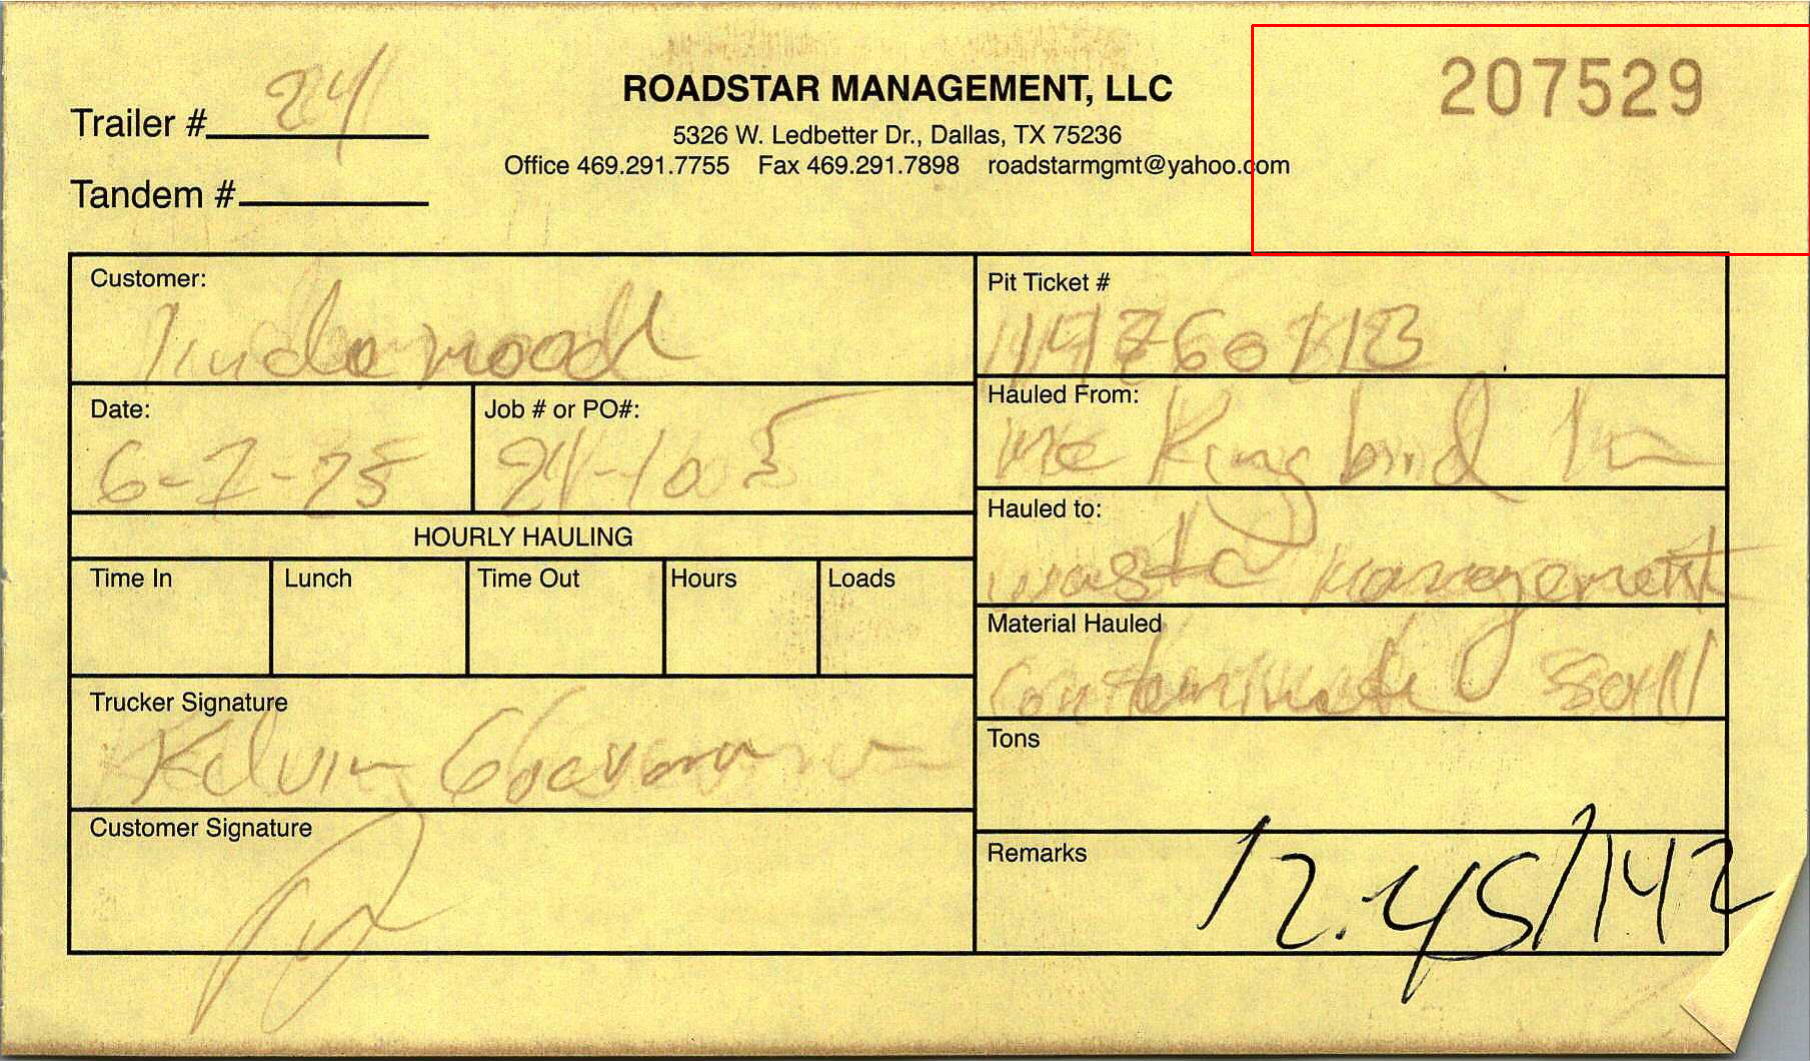 207529
ROADSTAR MANAGEMENT, LLC
Trailer # 24
5326 W. Ledbetter Dr., Dallas, TX 75236
Office 469.291.7755 Fax 469.291.7898 roadstarmgmt@yahoo.com
Tandem #
Customer:
Underwood
Pit Ticket #
Date:
6-7-25
Job # or PO#:
24-1005
Hauled From:
Kingbird Ln
HOURLY HAULING
Hauled to:
waste management
Time In
Lunch
Time Out
Hours
Loads
Material Hauled
Soil
Trucker Signature
Kelvin
Tons
Customer Signature
Remarks
12.45/142